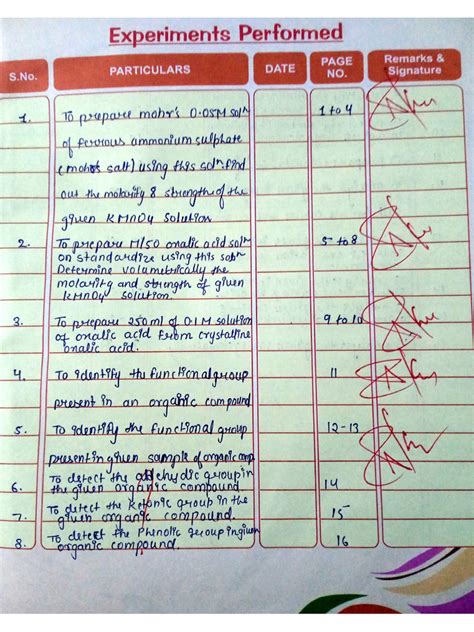 Experiments Performed
S.No. PARTICULARS DATE PAGE NO. Remarks & Signature
1. To prepare mohr's 0.05M solⁿ 1 to 4
of ferrous ammonium sulphate
(mohr's salt) using this solⁿ find
out the molarity & strength of the
given KMnO4 solution
2. To prepare M/50 oxalic acid solⁿ 5 to 8
on standardize using this solⁿ
Determine volumetrically the
molarity and strength of given
KMnO4 solution.
3. To prepare 250ml of 0.1M solution 9 to 10
of oxalic acid from crystalline
oxalic acid.
4. To identify the functional group 11
present in an organic compound
5. To identify the functional group 12-13
present in given sample of organic comp
6. To detect the aldehydic group in 14
the given organic compound
7. To detect the Ketonic group in the 15
given organic compound.
8. To detect the Phenolic group in given 16
organic compound.